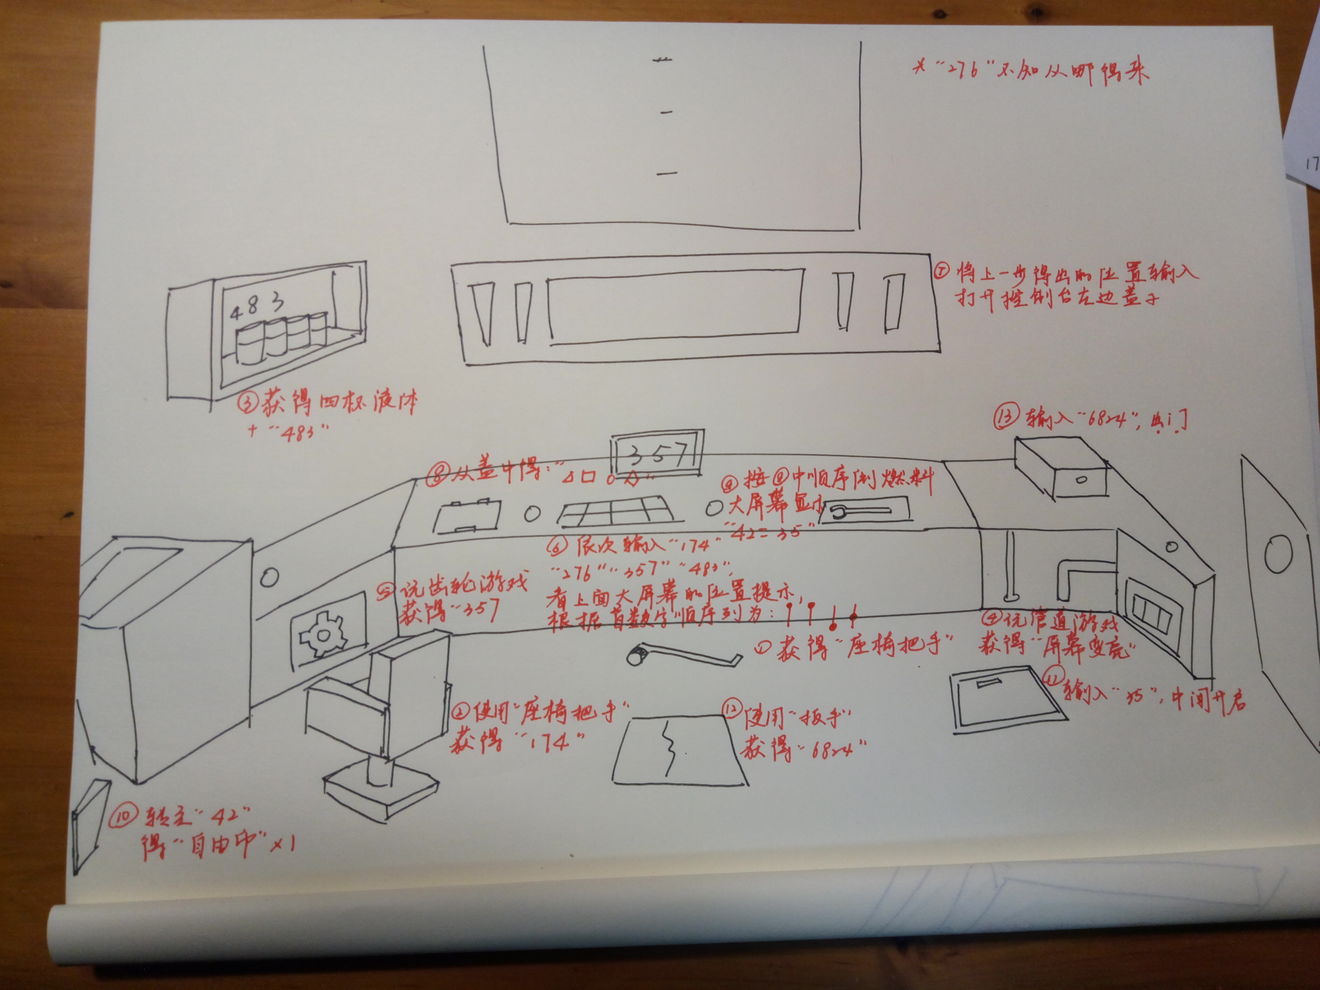 * "276"不知从哪得来
⑦将上一步得出的位置输入
打开控制台左边盖子
483
③获得四杯液体
+ "483"
⑬输入"6824",出门
357
⑧从盖中得:"△□○☆"
⑨按⑧中顺序倒燃料
大屏幕显示
"42=35"
⑥依次输入"174"
"276""357""483",
看上面大屏幕的位置提示,
根据首数字顺序列为:
⑤玩齿轮游戏
获得"357
①获得"座椅把手"
④玩管道游戏
获得"屏幕变亮"
⑪输入"35",中间开启
②使用"座椅把手"
获得"174"
⑫使用"扳手"
获得"6824"
⑩转至"42"
得"自由印"×1
17